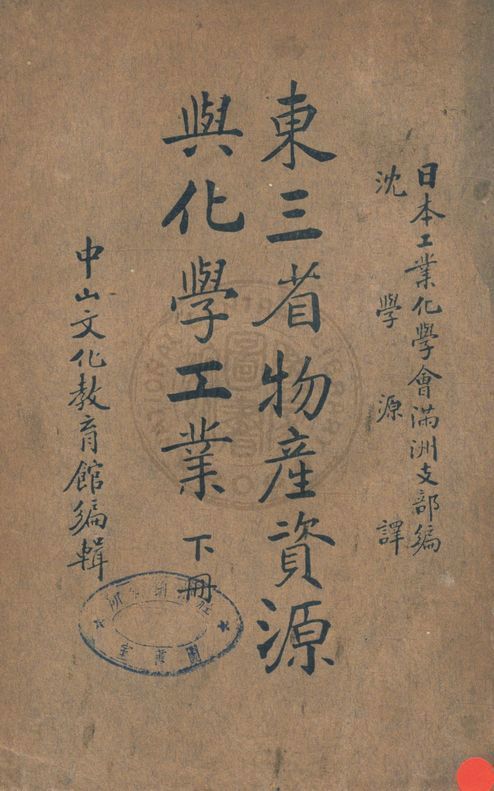 日本工業化學會滿洲支部編
沈學源譯
東三省物產資源
與化學工業 下冊
中山文化教育館編輯